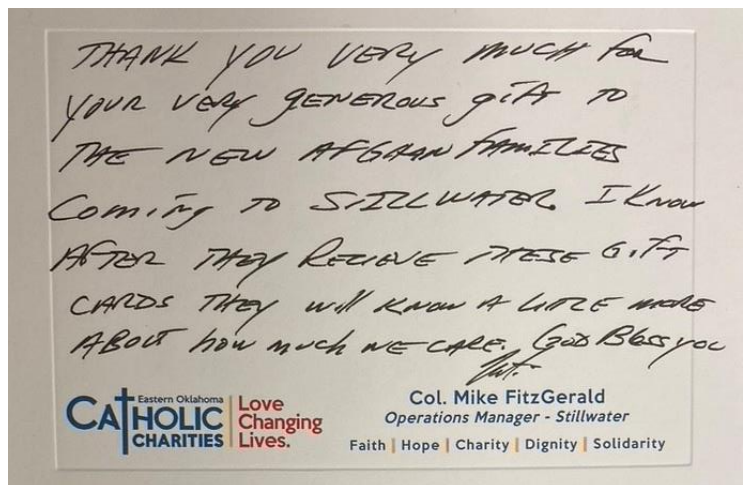 THANK YOU VERY MUCH FOR
YOUR VERY GENEROUS GIFT TO
THE NEW AFGHAN FAMILIES
COMING TO STILLWATER. I KNOW
AFTER THEY RECIEVE THESE GIFT
CARDS THEY WILL KNOW A LITTLE MORE
ABOUT HOW MUCH WE CARE. GOD BLESS YOU
Eastern Oklahoma
CATHOLIC
CHARITIES
Love
Changing
Lives.
Col. Mike FitzGerald
Operations Manager - Stillwater
Faith | Hope | Charity | Dignity | Solidarity